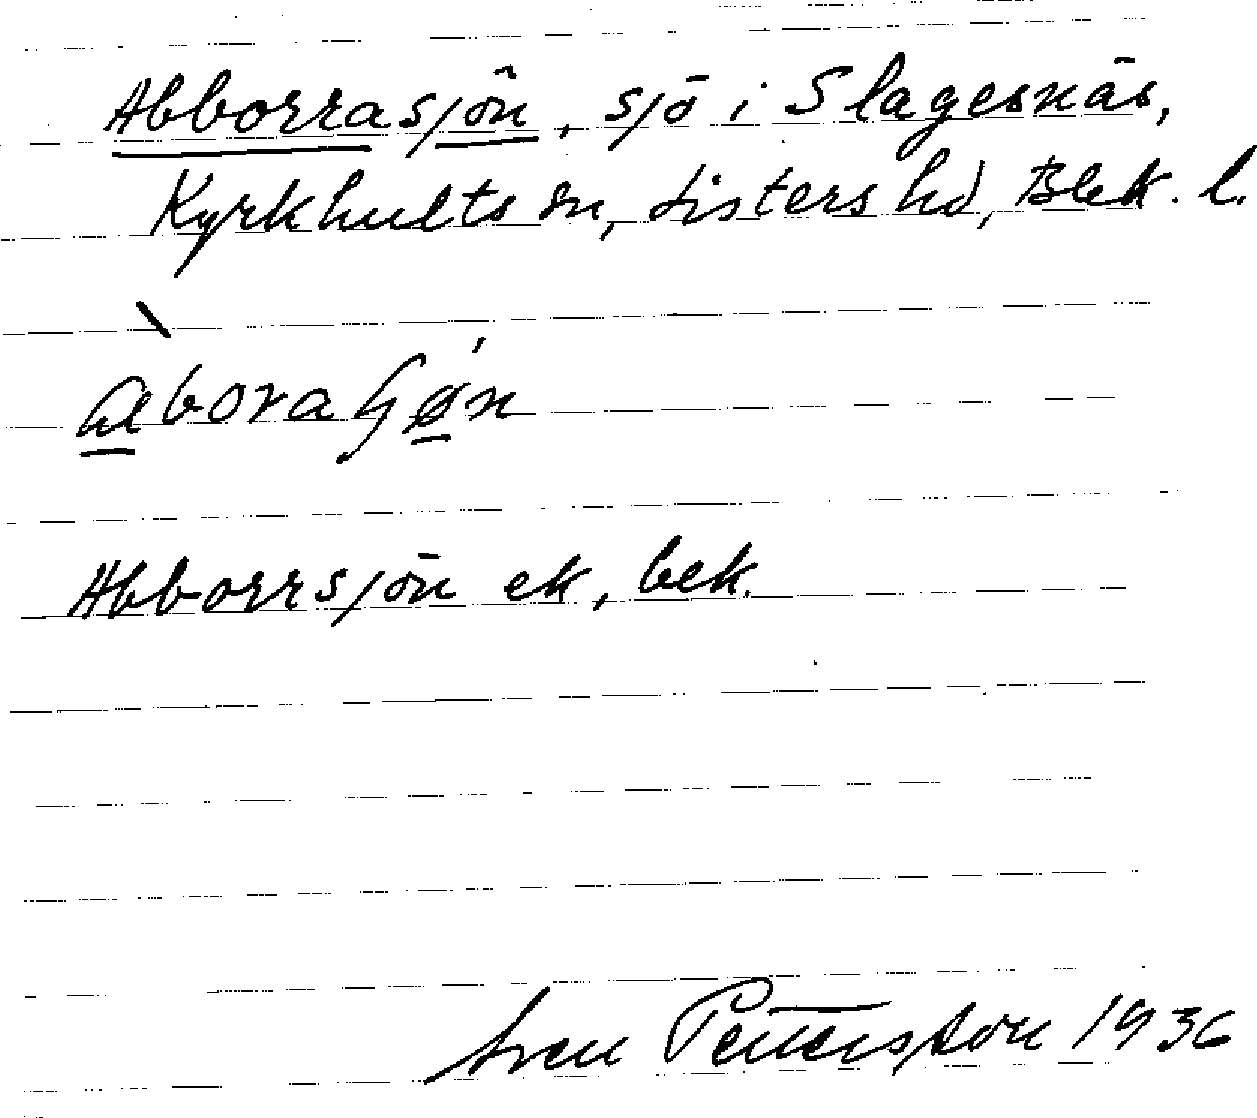 Abborrasjön, sjö i Slagesnäs,
Kyrkhults sn, Listers hd, Blek. l.
àboraɧǿn
Abborrsjön ek, bek.
Sven Pettersson 1936